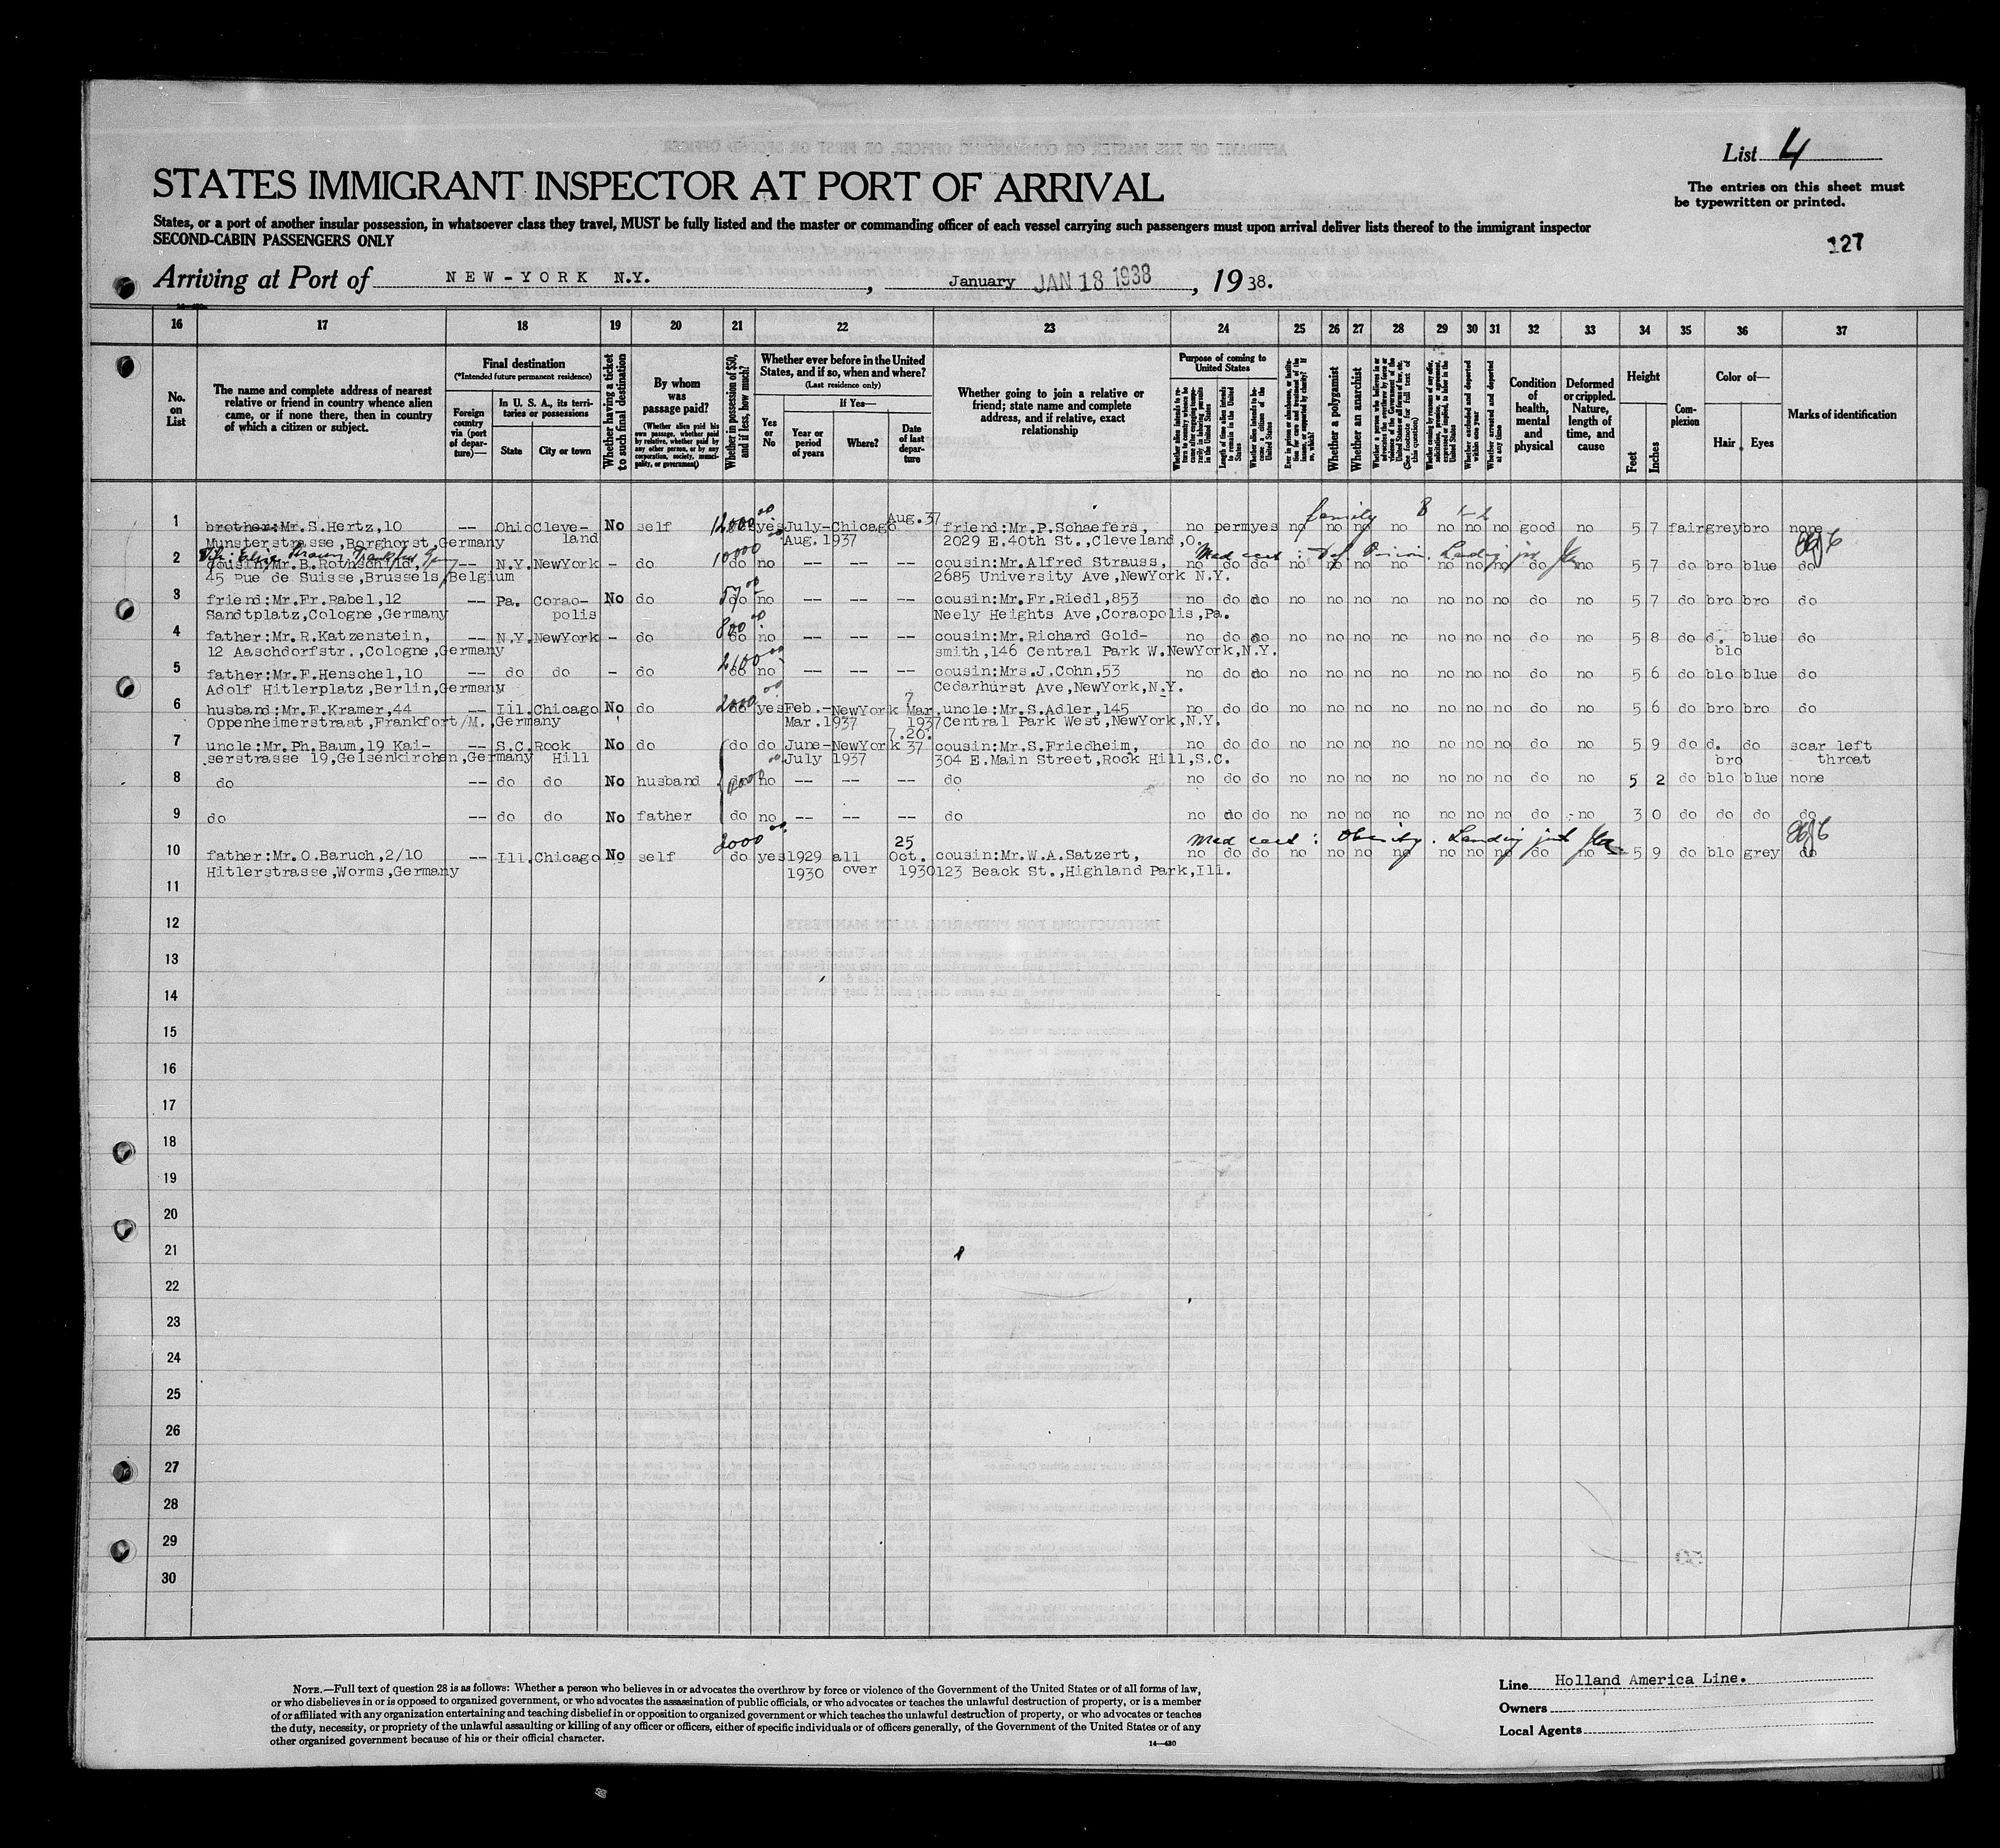 List 4
The entries on this sheet must
be typewritten or printed.
STATES IMMIGRANT INSPECTOR AT PORT OF ARRIVAL
States, or a port of another insular possession, in whatsoever class they travel, MUST be fully listed and the master or commanding officer of each vessel carrying such passengers must upon arrival deliver lists thereof to the immigrant inspector
SECOND-CABIN PASSENGERS ONLY
127
Arriving at Port of NEW-YORK N.Y. , January JAN 18 1938 , 19 38.
16 17 18 19 20 21 22 23 24 25 26 27 28 29 30 31 32 33 34 35 36 37
No. on List
The name and complete address of nearest relative or friend in country whence alien came, or if none there, then in country of which a citizen or subject.
Final destination
(*Intended future permanent residence)
Foreign country via (port of departure)—
In U. S. A., its territories or possessions
State
City or town
Whether having a ticket to such final destination
By whom was passage paid?
(Whether alien paid his own passage, whether paid by relative, whether paid by any other person, or by any corporation, society, municipality, or government)
Whether in possession of $50, and if less, how much?
Whether ever before in the United States, and if so, when and where?
(Last residence only)
Yes or No
If Yes—
Year or period of years
Where?
Date of last departure
Whether going to join a relative or friend; state name and complete address, and if relative, exact relationship
Purpose of coming to United States
Whether a polygamist
Whether an anarchist
Condition of health, mental and physical
Deformed or crippled. Nature, length of time, and cause
Height
Feet
Inches
Complexion
Color of—
Hair
Eyes
Marks of identification
family B
1 brother: Mr. S. Hertz, 10 -- Ohio Cleve- No self 12000 00 yes July- Chicago Aug.37 friend: Mr. P. Schaefers, no perm yes no no no no no no no good no 5 7 fair grey bro none
Munsterstrasse, Borghorst, Germany land Aug. 1937 2029 E. 40th St., Cleveland, O.
Med cert :
2 cousin: Mr. B. Rothschild, -- N.Y. NewYork - do 10000 do no -- -- -- cousin: Mr. Alfred Strauss, no do do no no no no no no no do no 5 7 do bro blue do
45 Rue de Suisse, Brussels, Belgium 2685 University Ave, NewYork N.Y.
3 friend: Mr. Fr. Rabel, 12 -- Pa. Corao- No do do no -- -- -- cousin: Mr. Fr. Riedl, 853 no do do no no no no no no no do no 5 7 do bro bro do
Sandtplatz, Cologne, Germany polis Neely Heights Ave, Coraopolis, Pa.
4 father: Mr. R. Katzenstein, -- N.Y. NewYork - do 800 00 do no -- -- -- cousin: Mr. Richard Gold- no do do no no no no no no no do no 5 8 do d. blue do
12 Aaschdorfstr., Cologne, Germany smith, 146 Central Park W. NewYork, N.Y. blo
5 father: Mr. E. Henschel, 10 -- do do - do do no -- -- -- cousin: Mrs. J. Cohn, 53 no do do no no no no no no no do no 5 6 do blo blue do
Adolf Hitlerplatz, Berlin, Germany Cedarhurst Ave, NewYork, N.Y.
6 husband: Mr. F. Kramer, 44 -- Ill. Chicago No do 2000 00 do yes Feb.- NewYork 7 Mar. uncle: Mr. S. Adler, 145 no do do no no no no no no no do no 5 6 do bro bro do
Oppenheimerstraat, Frankfort/M., Germany Mar. 1937 1937 Central Park West, NewYork, N.Y.
7 uncle: Mr. Ph. Baum, 19 Kai- -- S.C. Rock No do do do June- NewYork 7.20. 37 cousin: Mr. S. Friedheim, no do do no no no no no no no do no 5 9 do d. do scar left
serstrasse 19, Gelsenkirchen, Germany Hill July 1937 304 E. Main Street, Rock Hill, S.C. bro throat
8 do -- do do No husband do no -- -- -- do no do do no no no no no no no do no 5 2 do blo blue none
9 do -- do do No father do no -- -- -- do no do do no no no no no no no do no 3 0 do do do do
Med cert : Obesity.
10 father: Mr. O. Baruch, 2/10 -- Ill. Chicago No self do yes 1929 all 25 Oct. cousin: Mr. W.A. Satzert, no do do no no no no no no no do no 5 9 do blo grey do
Hitlerstrasse, Worms, Germany 1930 over 1930 123 Beack St., Highland Park, Ill.
11
12
13
14
15
16
17
18
19
20
21
22
23
24
25
26
27
28
29
30
NOTE.—Full text of question 28 is as follows: Whether a person who believes in or advocates the overthrow by force or violence of the Government of the United States or of all forms of law,
or who disbelieves in or is opposed to organized government, or who advocates the assassination of public officials, or who advocates or teaches the unlawful destruction of property, or is a member
of or affiliated with any organization entertaining and teaching disbelief in or opposition to organized government or which teaches the unlawful destruction of property, or who advocates or teaches
the duty, necessity, or propriety of the unlawful assaulting or killing of any officer or officers, either of specific individuals or of officers generally, of the Government of the United States or of any
other organized government because of his or their official character.
14—430
Line Holland America Line.
Owners
Local Agents